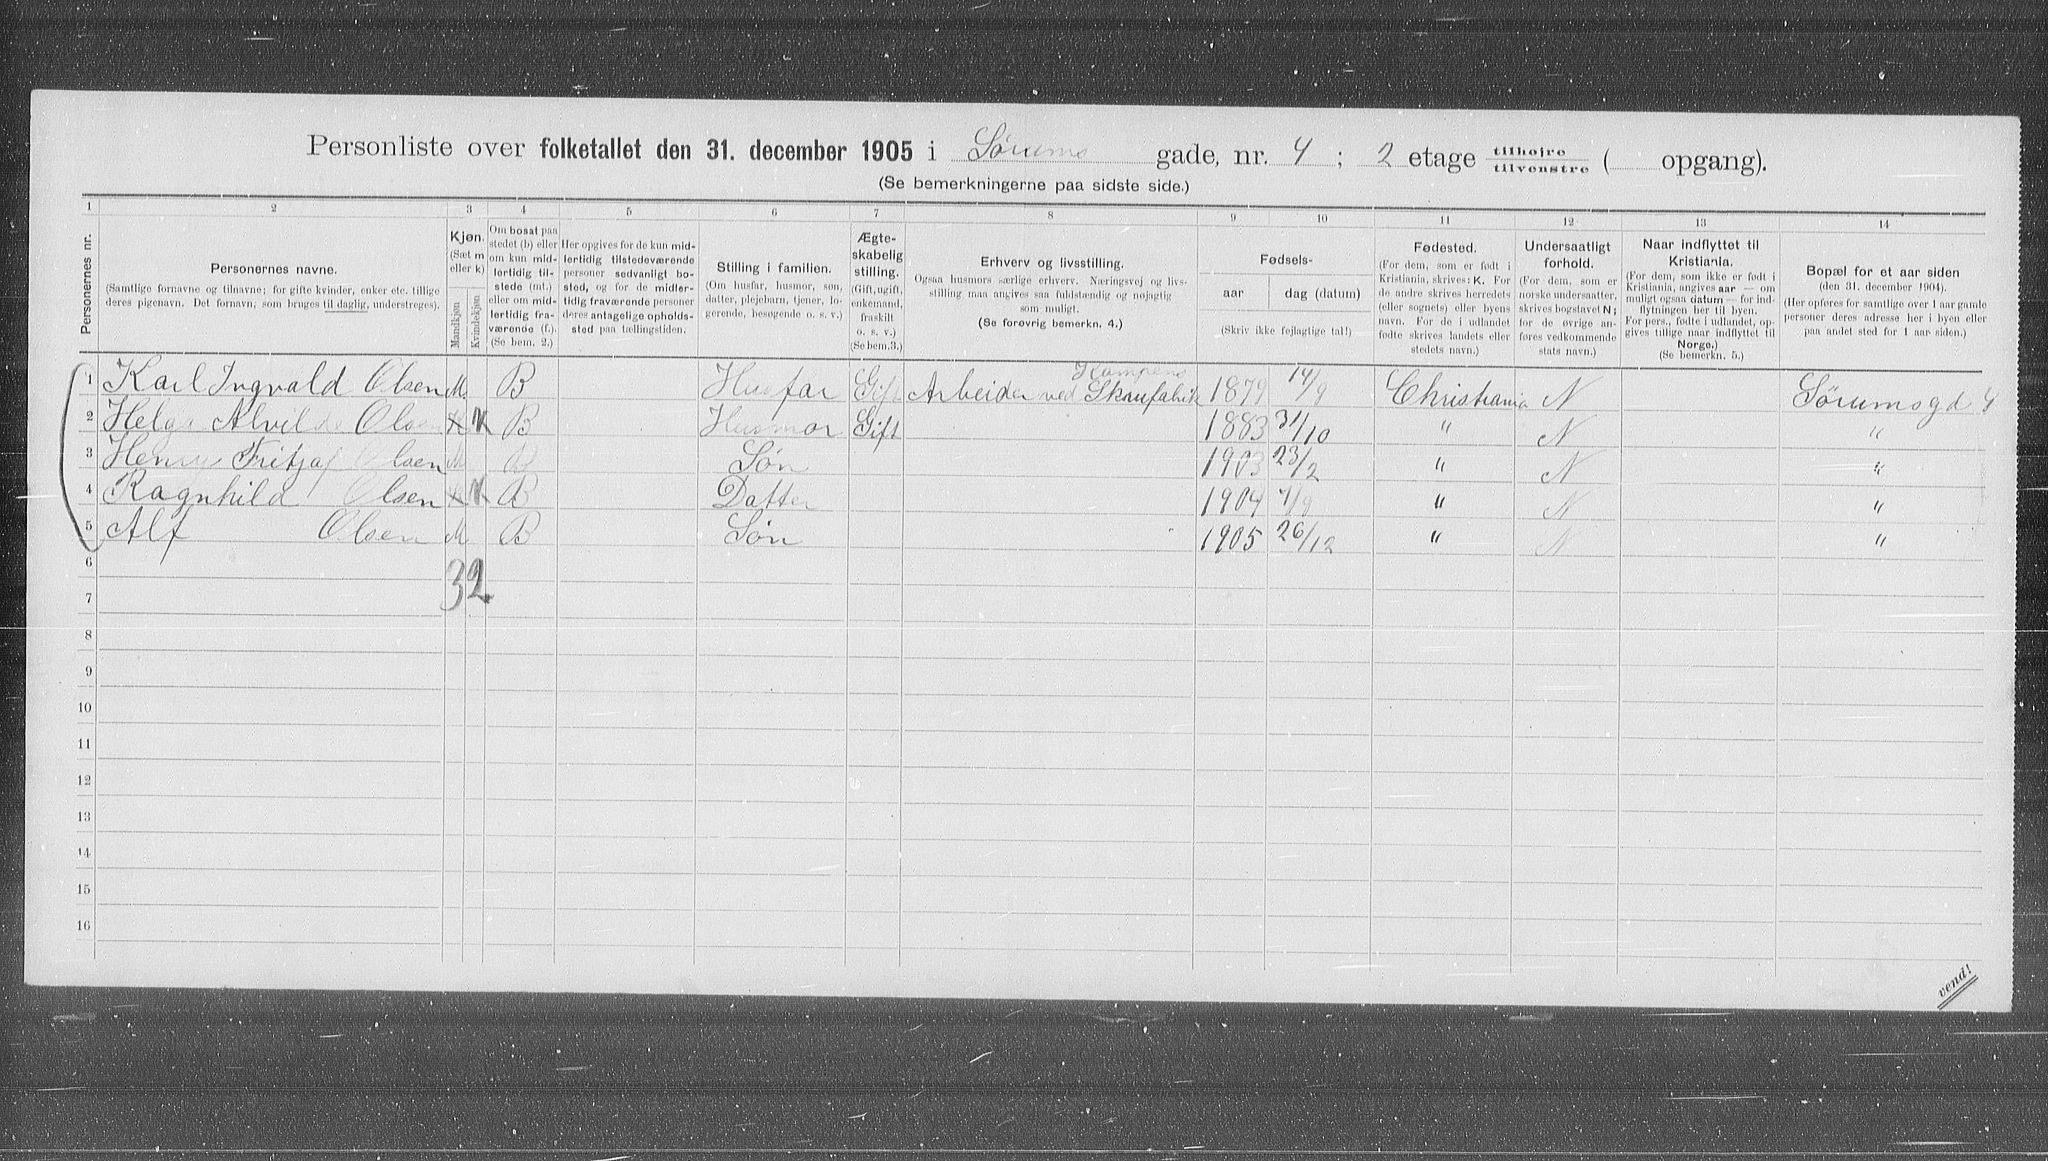 Personliste over folketallet den 31. december 1905 i Sørums gade, nr. 4 ; 2 etage tilhøjre / tilvenstre ( opgang).
(Se bemerkningerne paa sidste side.)
1 2 3 4 5 6 7 8 9 10 11 12 13 14
Personernes nr.
Personernes navne.
(Samtlige fornavne og tilnavne; for gifte kvinder, enker etc. tillige
deres pigenavn. Det fornavn, som bruges til daglig, understreges).
Kjøn.
(Sæt m
eller k)
Mandkjøn
Kvindekjøn
Om bosat paa
stedet (b) eller
om kun mid-
lertidig til-
stede (mt.)
eller om mid-
lertidig fra-
værende (f.).
(Se bem. 2.)
Her opgives for de kun mid-
lertidig tilstedeværende
personer sedvanligt bo-
sted, og for de midler-
tidig fraværende personer
deres antagelige opholds-
sted paa tællingstiden.
Stilling i familien.
(Om husfar, husmor, søn,
datter, plejebarn, tjener, lo-
gerende, besøgende o. s. v.)
Ægte-
skabelig
stilling.
(Gift, ugift,
enkemand,
fraskilt
o. s. v.)
(Se bem. 3.)
Erhverv og livsstilling.
Ogsaa husmors særlige erhverv. Næringsvej og livs-
stilling maa angives saa fuldstændig og nøjagtig
som muligt.
(Se forøvrig bemerkn. 4.)
Fødsels-
aar dag (datum)
(Skriv ikke fejlagtige tal!)
Fødested.
(For dem, som er født i
Kristiania, skrives: K. For
de andre skrives herredets
(eller sognets) eller byens
navn. For de i udlandet
fødte skrives landets eller
stedets navn.)
Undersaatligt
forhold.
(For dem, som er
norske undersaatter,
skrives bogstavet N;
for de øvrige an-
føres vedkommende
stats navn.)
Naar indflyttet til
Kristiania.
(For dem, som ikke er født i
Kristiania, angives aar — om
muligt ogsaa datum — for ind-
flytningen her til byen.
For pers., fødte i udlandet, op-
gives tillige naar indflyttet til
Norge.)
(Se bemerkn. 5.)
Bopæl for et aar siden
(den 31. december 1904).
(Her opføres for samtlige over 1 aar gamle
personer deres adresse her i byen eller
paa andet sted for 1 aar siden.)
1 Karl Ingvald Olsen M. B Husfar Gift Arbeider ved Kampens Skaufabrik 1879 14/9 Christiania N Sørumsgd 4
2 Helga Alvilde Olsen K B Husmor Gift 1883 31/10 " N "
3 Henry Fritjof Olsen M B Søn 1903 23/2 " N "
4 Ragnhild Olsen K B Datter 1904 7/9 " N "
5 Alf Olsen M B Søn 1905 26/12 " N "
6
3 2
7
8
9
10
11
12
13
14
15
16
vend!